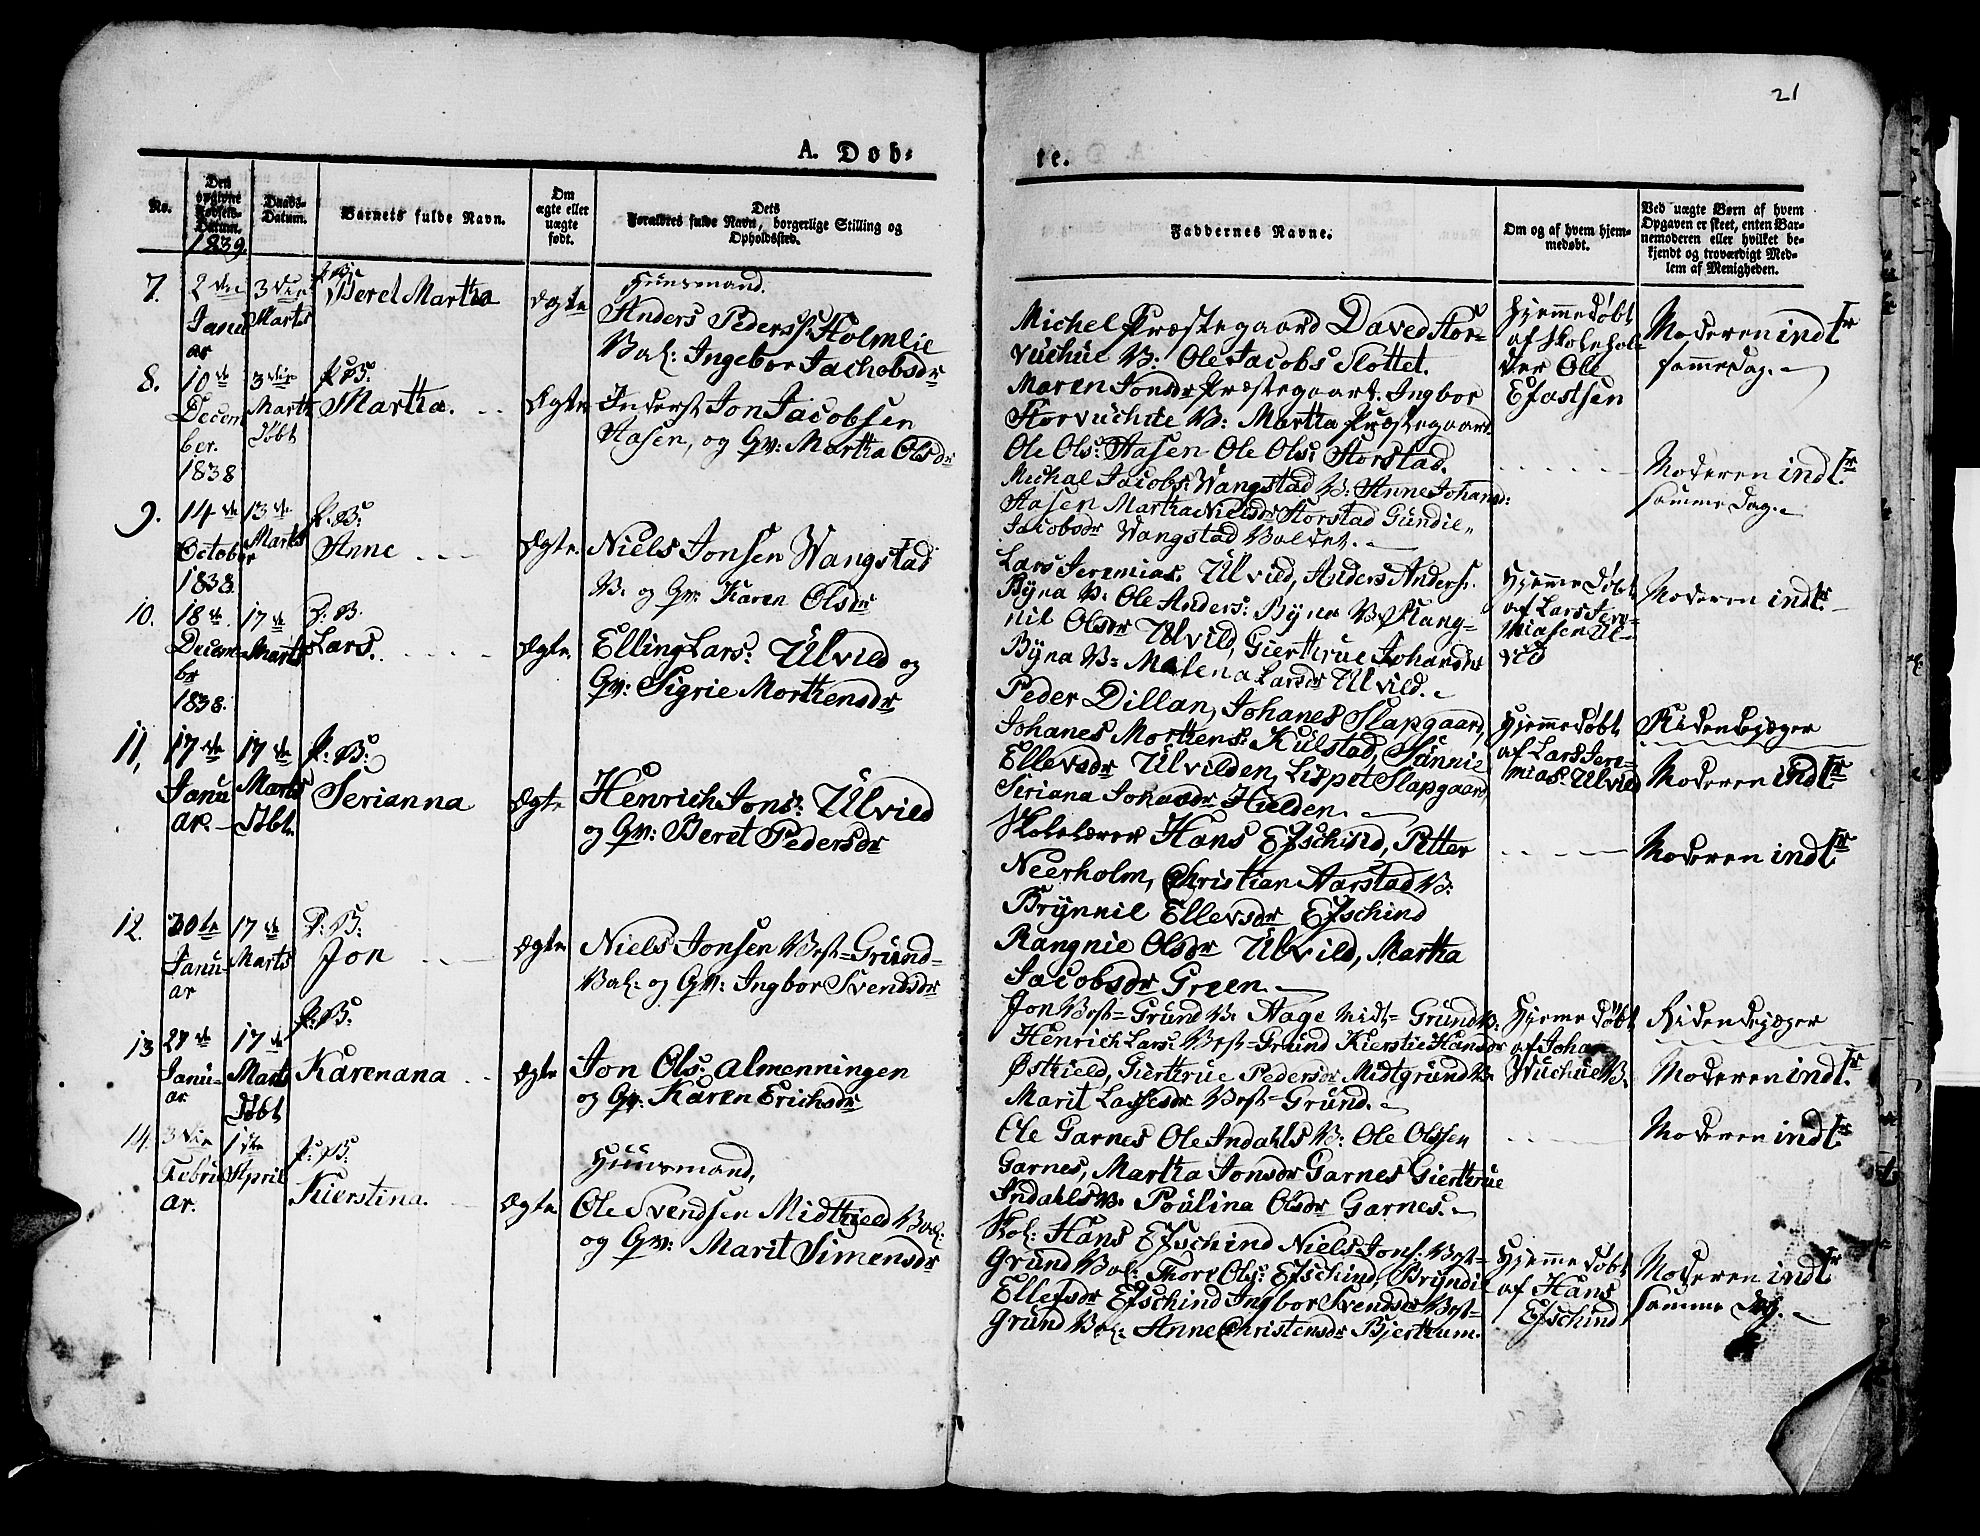 21
A. Døb-
te.
No.
Den opgivne Fødsels-Datum.
1839.
Daabs-Datum.
Barnets fulde Navn.
Om ægte eller uægte født.
Dets Forældres fulde Navn, borgerlige Stilling og Opholdssted.
Faddernes Navne.
Om og af hvem hjemmedøbt.
Ved uægte Børn af hvem Opgaven er skeet, enten Barnemoderen eller hvilket bekjendt og troværdigt Medlem af Menigheden.
7. 2den Januar
3die Marts
P.B: Beret Martha
Ægte
Huusmand.
Anders Peders: Holmlie
Val: Ingebor Jachobsdr
Michel Præstegaard Daved Stor-
vuchue V: Ole Jacobs Slottet.
Maren Jonsdr Præstegaart. Ingbor
Storvuchue V: Martha Præstegaard
Hjemmedøbt
af Skolehol-
der Ole
Moderen indl:
samme Dag.
8. 10de December. 1838
3die Marts Døbt
P.B:
Martha.
Ægte
Inderst Jon Jacobsen
Aasen, og Gv: Martha Olsdr
Ole Ols: Aasen Ole Ols: Storstad.
Michal Jacobs: Wangstad V: Anne Johansd:
Aasen Martha Nielsdr Storstad Gundie
Jacobsdr Wangstad Valdet.
Moderen indl:
samme Dag.
9. 14de October 1838
13de Marts
P.B:
Anne
Ægte
Niels Jonsen Wangstad
V: og Gv: Karen Olsdr
Lars Jeremias. Ulvild, Anders Anders:
Byna V: Ole Anders: Byna V: Rang-
nil Olsdr Ulvild, Giertrue Johansdr
Byna V: Malena Larsdr Ulvild.
Hjemme døbt
af Lars Jere-
miasen Ul-
vild
Moderen indl:
10. 18de December 1838.
17de Marts
P:B.
Lars.
Ægte
Elling Lars: Ulvild og
Gv: Sigrie Morthensdr
Peder Dillan, Johanes Slapgaard,
Johanes Morthens: Kulstad, Sünnie
Ellevsdr Ulvilden, Lispet Slapgaard,
Siriana Johasdr Hielden.
Hjemmedøbt
af Lars Jere-
mias: Ulvild
Ridendejæger
Moderen indl:
11. 17de Januar.
17de Marts Døbt.
P:B:
Serianna
Ægte
Henrich Jons: Ulvild
og Gv: Beret Pedersdr
Skolelærer Hans Efschind, Petter
Neerholm, Christian Aarstad V:
Brynnil Ellevsdr Efschind
Rangnie Olsdr Ulvild, Martha
Jacobsdr Green.
Moderen indl:
12. 20de Januar
17de Marts
P:B:
Jon
Ægte
Niels Jonsen Vest=Grund=
Val: og Gv: Ingbor Svendsdr
Jon Vest=Grund V: Aage Midt=Grund V:
Henrich Lars: Vest=Grund Kierstie Hansdr
Østhield, Giertrue Pedersdr Midtgrund V:
Marit Lassesdr Vest=Grund.
Hjeme døbt
af Johan
Wuchue V.
Ridendejæger
Moderen indl:
13 27de Januar
17de Marts Døbt
P:B:
Karenana
Ægte
Jon Ols: Almenningen
og Gv: Karen Erichsdr
Ole Garnes Ole Indahls V: Ole Olssen
Garnes, Martha Jonsdr Garnes Giertrue
Indahls V: Poulina Olsdr Garnes.
Moderen indl:
14. 3die Februar.
1ste April
P:B:
Kierstina.
Ægte
Huusmand,
Ole Svendsen Midthield Val:
og Gv: Marit Simensdr
Skol: Hans Efschind Niels Jons: Vest=
Grund Val: Thore Ols: Efschind, Bryndil
Ellefsdr Efschind Ingbor Svendsdr Vest=
Grund Val: Anne Christensdr Bjertrum.
Hjemmedøbt
af Hans
Efschind
Moderen indl:
samme Dag.